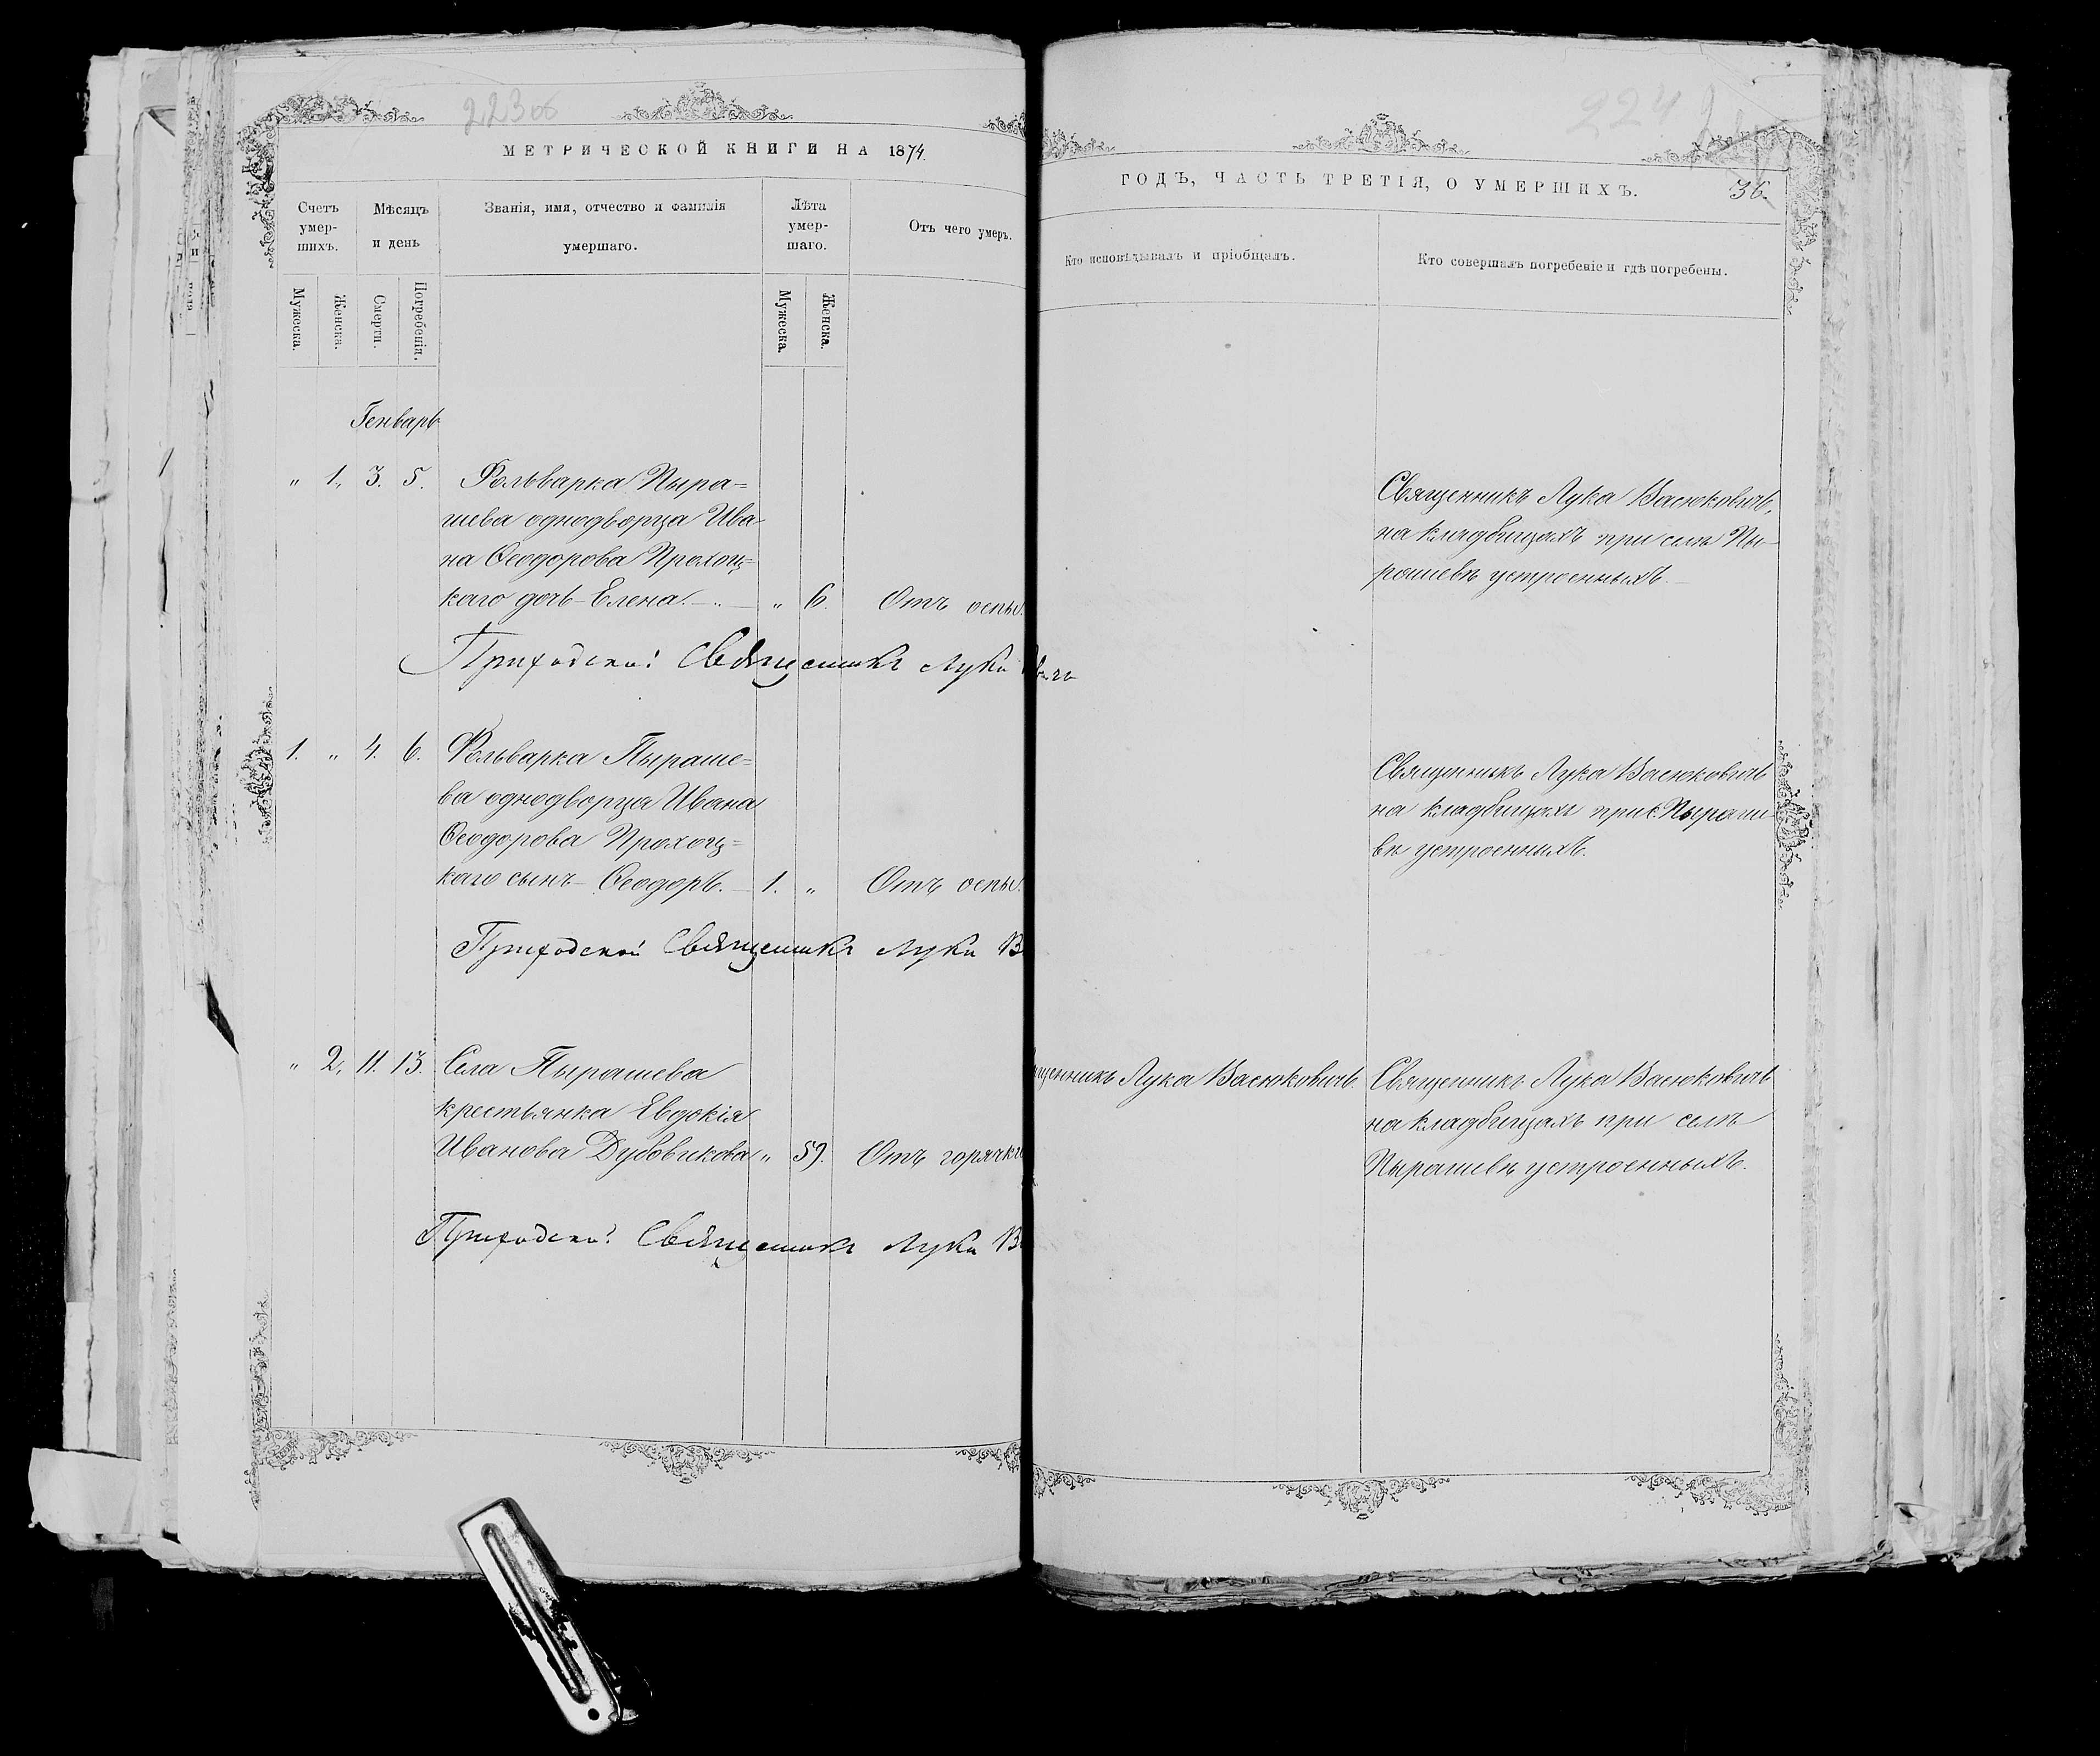 223об
224
МЕТРИЧЕСКОЙ КНИГИ НА 1874.
ГОДЪ, ЧАСТЬ ТРЕТІЯ, О УМЕРШИХЪ.
36.
Счетъ умер-шихъ.
Мѣсяцъ и день
Званія, имя, отчество и фамилія умершаго.
Лѣта умер-шаго.
Отъ чего умеръ.
Кто исповѣдывалъ и пріобщалъ.
Кто совершалъ погребеніе и гдѣ погребены.
Мужеска.
Женска.
Смерти.
Погребенія.
Мужеска.
Женска.
Генварь
" 1. 3. 5. Фольварка Пыра=
шева однодворца Ива-
на Ѳеодорова Прохоц=
каго дочь – Елена. " 6. Отъ оспы.
Священникъ Лука Васюковичъ,
на кладбищахъ при селѣ Пы-
рашевѣ устроенныхъ.
Приходскій Священникъ Лука
1. " 4. 6. Фольварка Пыраше-
ва однодворца Ивана
Ѳеодорова Прохоц=
каго сынъ – Ѳеодоръ. 1. " Отъ оспы.
Священникъ Лука Васюковичъ
на кладбищахъ при с. Пыраше-
вѣ устроенныхъ.
Приходскій Священникъ Лука В
" 2. 11. 13. Села Пырашева
крестьянка Евдокія
Иванова Дубовикова " 59. Отъ горячки
щенникъ Лука Васюковичъ.
Священникъ Лука Васюковичъ
на кладбищахъ при селѣ
Пырашевѣ устроенныхъ.
Приходскій Священникъ Лука В